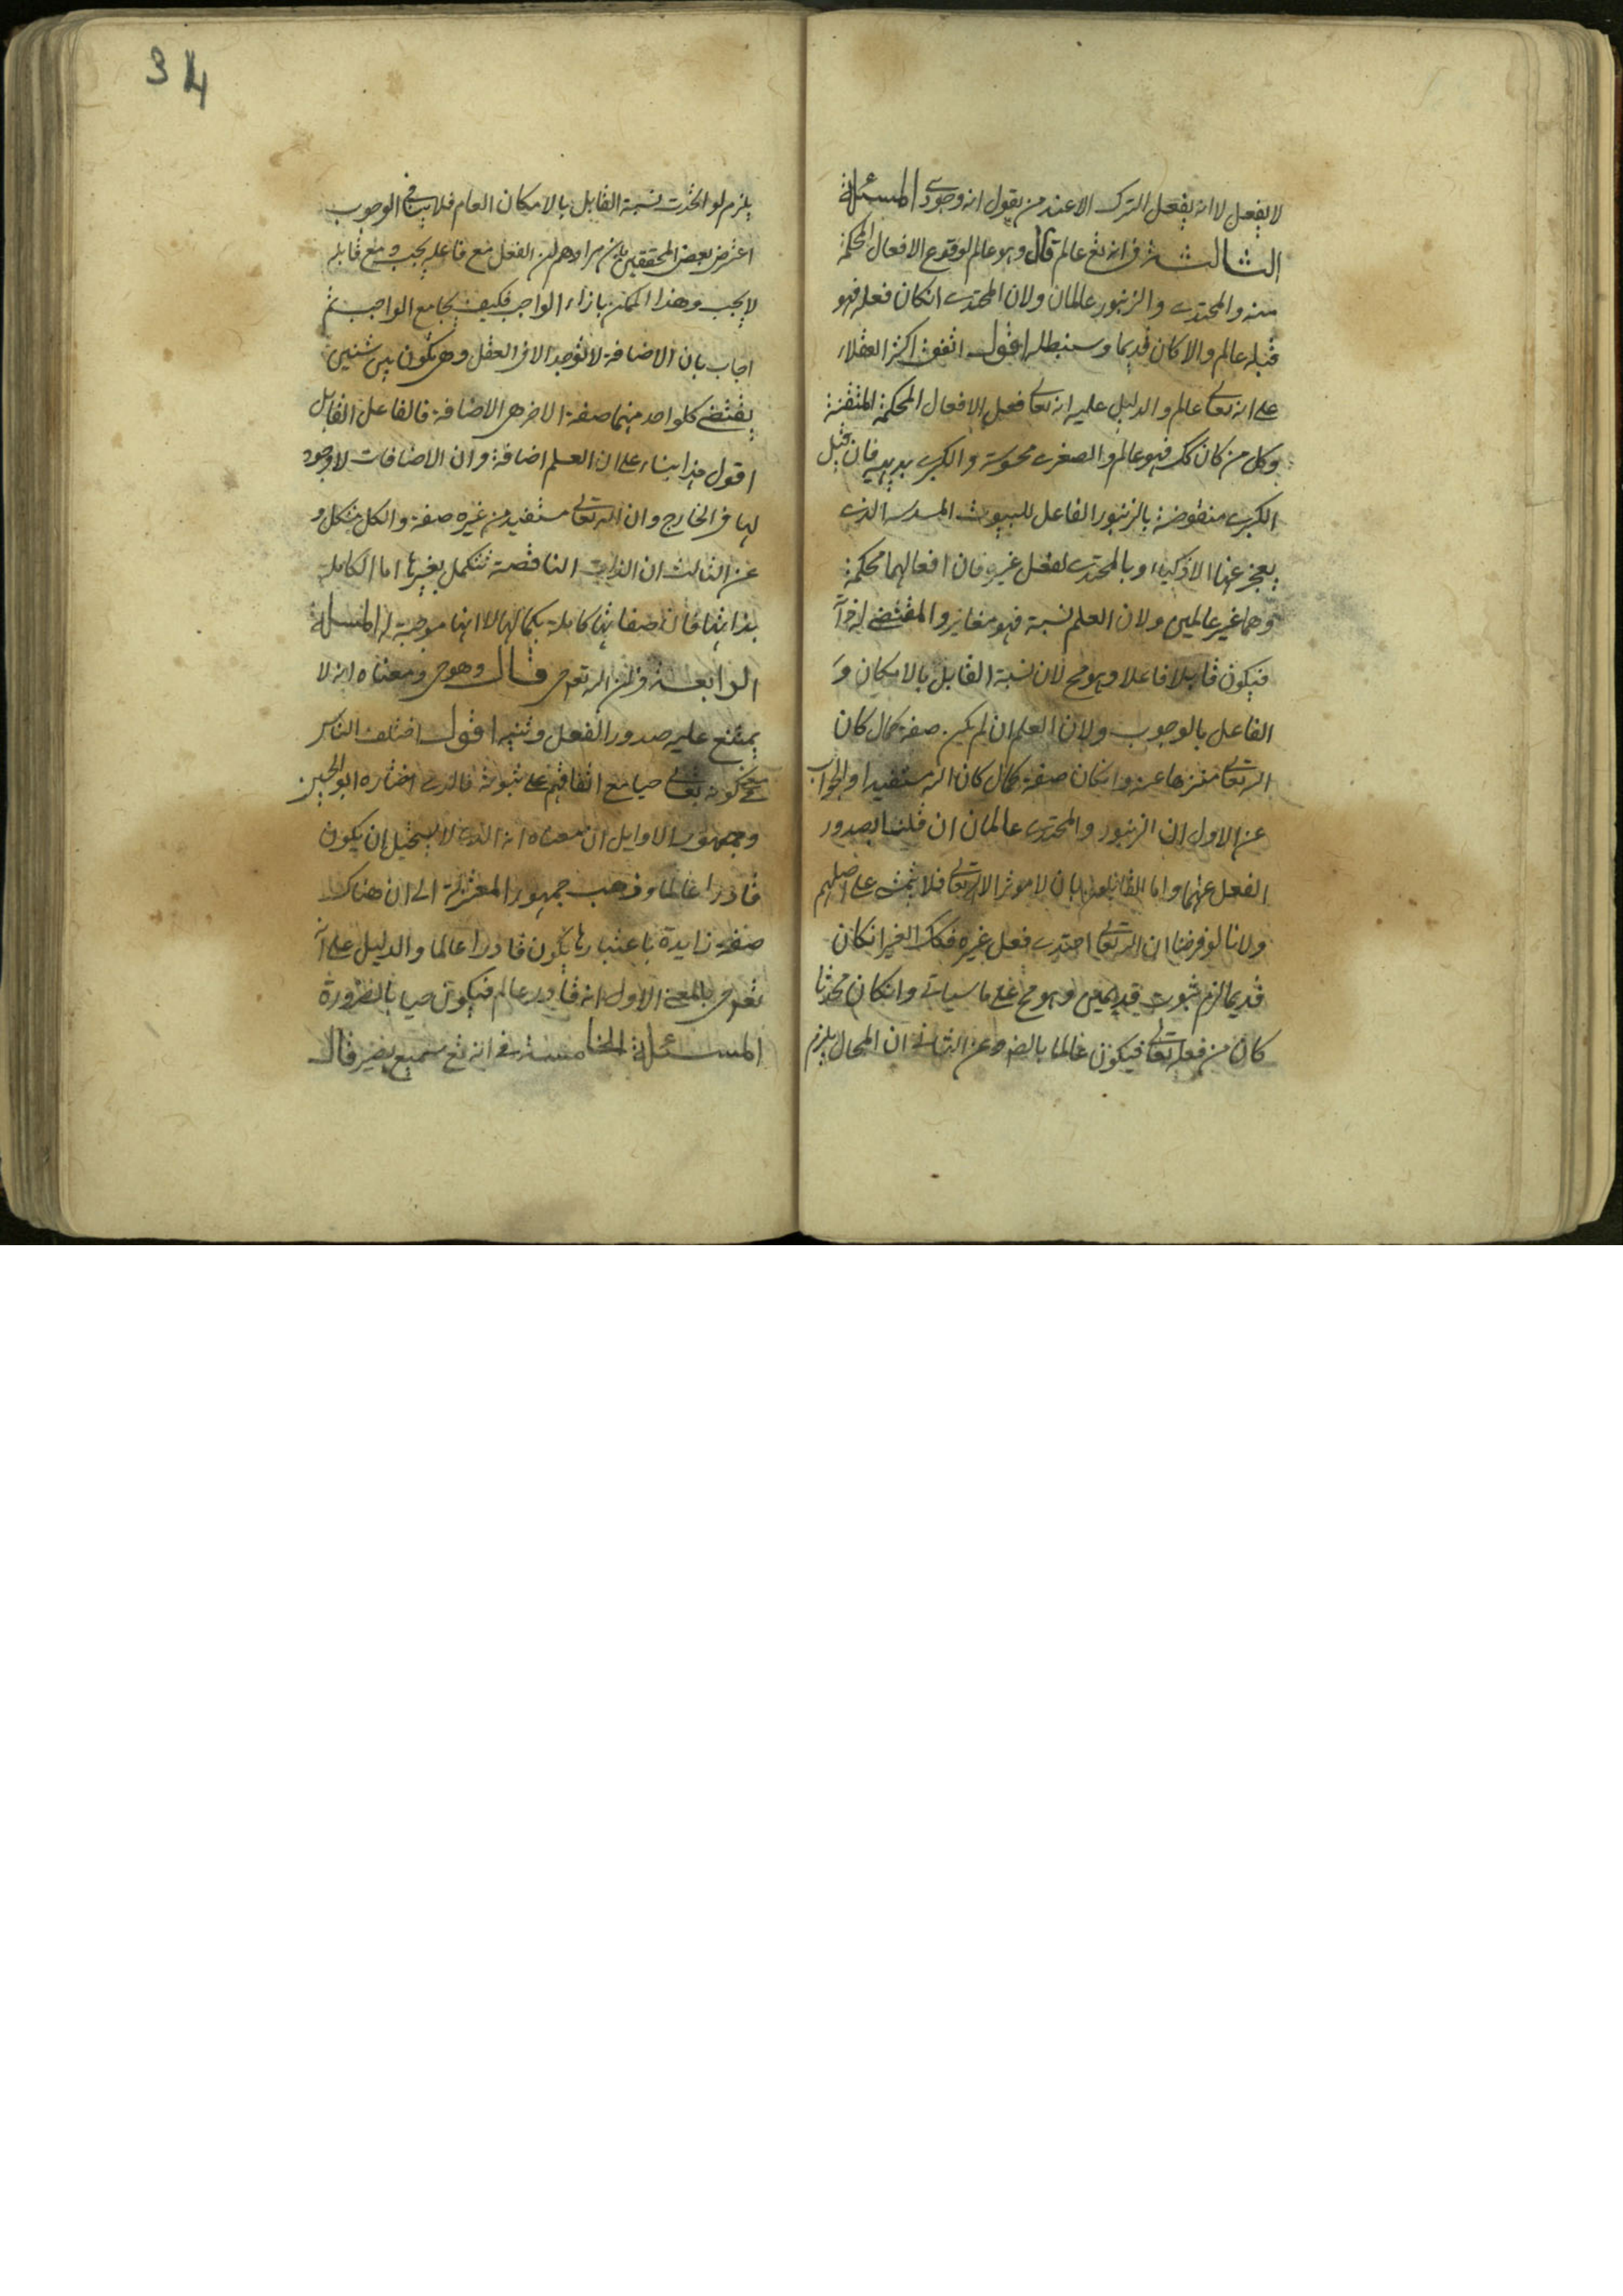 لا يفعل لا انه يفعل الترك الا عند من يقول انه وجودى المسئلة
الثالثة فى انه تع عالم قال وهو عالم لوقوع الافعال المحكمة
منه والمحتذى والزنبور عالمان ولان المحتذى انكان فعله فهو
قبله عالم والا كان قديما وسنبطله اقول اتفق اكثر العقلاء
على انه تعالى عالم والدليل عليه انه تعالى فعل الافعال المحكمة المتقنة
وكل من كان كك فهو عالم والصغرى محسوسة والكبرى بديهية فان قيل
الكبرى منقوضة بالزنبور الفاعل للبيوت المسدسة الذى
يعجز عنها الاذكياء وبالمحتذى لفعل غيره فان افعالهما محكمة
وهما غير عالمين ولان العلم نسبة فهو مغاير والمقتضى له ذاته
فيكون قابلا فاعلا وهو مح لان نسبة القابل بالامكان و
الفاعل بالوجوب ولان العلم ان لم يكن صفة كمال كان
الله تعالى منزها عنه وانكان صفة كمال كان الله مستفيدا والجواب
عن الاول ان الزنبور والمحتذى عالمان ان قلنا بصدور
الفعل عنهما واما القايلون بان لا موثر الا الله تعالى فلا يتمشى على اصلهم
ولانا لو فرضنا ان الله تعالى احتذى فعل غيره فذلك الغير انكان
قديما لزم ثبوت قديمين وهو مح على ما سياتى وانكان محدثا
كان من فعله تعالى فيكون عالما بالضرورة وعن الثانى ان المحال يلزم
يلزم لو اتحدت نسبة القابل بالامكان العام فلا ينافى الوجوب
اعترض بعض المحققين بان مرادهم ان الفعل مع فاعله يجب و مع قابله
لا يجب وهذا الممكن بازاء الواجب فكيف يجامع الواجب ثم
اجاب بان الاضافة لا توجد الا فى العقل وهى تكون بين شيئين
يقتضى كلواحد منهما صفة الاخر هى الاضافة فالفاعل القابل
اقول هذا بناء على ان العلم اضافة وان الاضافات لا وجود
لها فى الخارج وان الله تعالى مستفيد من غيره صفة والكل مشكل و
عن الثالث ان الذات الناقصة تتكمل بغيرها اما الكاملة
بذاتها فان صفاتها كاملة بكمالها لا انها موجبة له المسئلة
الرابعة فى ان الله تع حى قال وهو حى ومعناه انه لا
يمتنع عليه صدور الفعل وتنبيه اقول اختلف الناس
فى معنى كونه تعالى حيا مع اتفاقهم على ثبوته فالذى اختاره ابو الحسين
وجمهور الاوايل ان معناه انه الذى لا يستحيل ان يكون
قادرا عالما وذهب جمهور المعتزلة الى ان هناك
صفة زايدة باعتبارها يكون قادرا عالما والدليل على انه
تع حى بالمعنى الاول انه قادر عالم فيكون حيا بالضرورة
المسئلة الخامسة فى انه تع سميع بصير قال
34